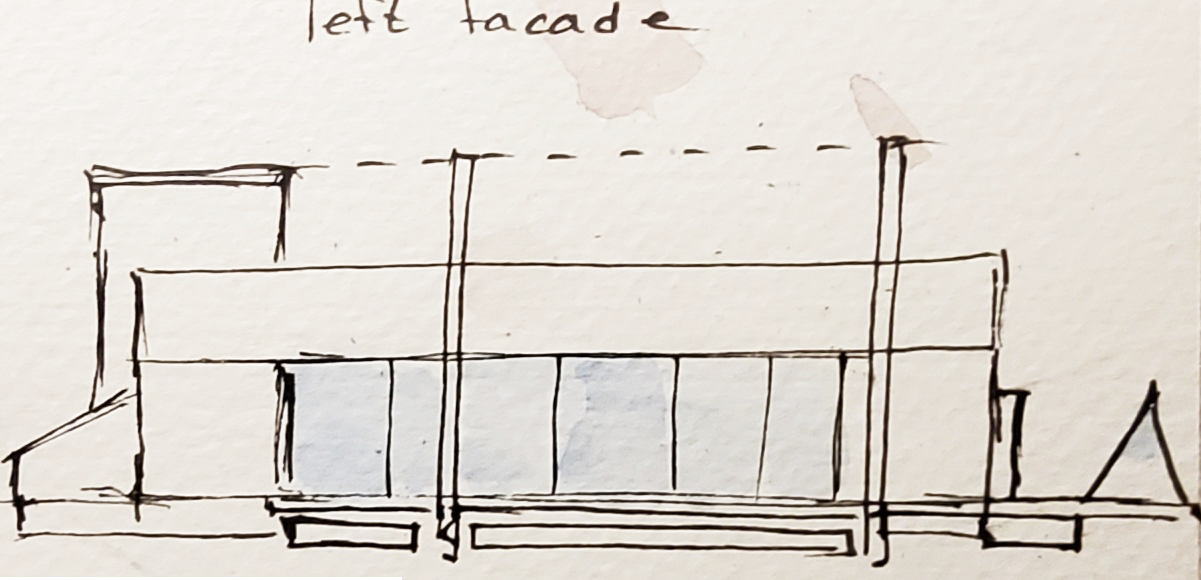 left facade